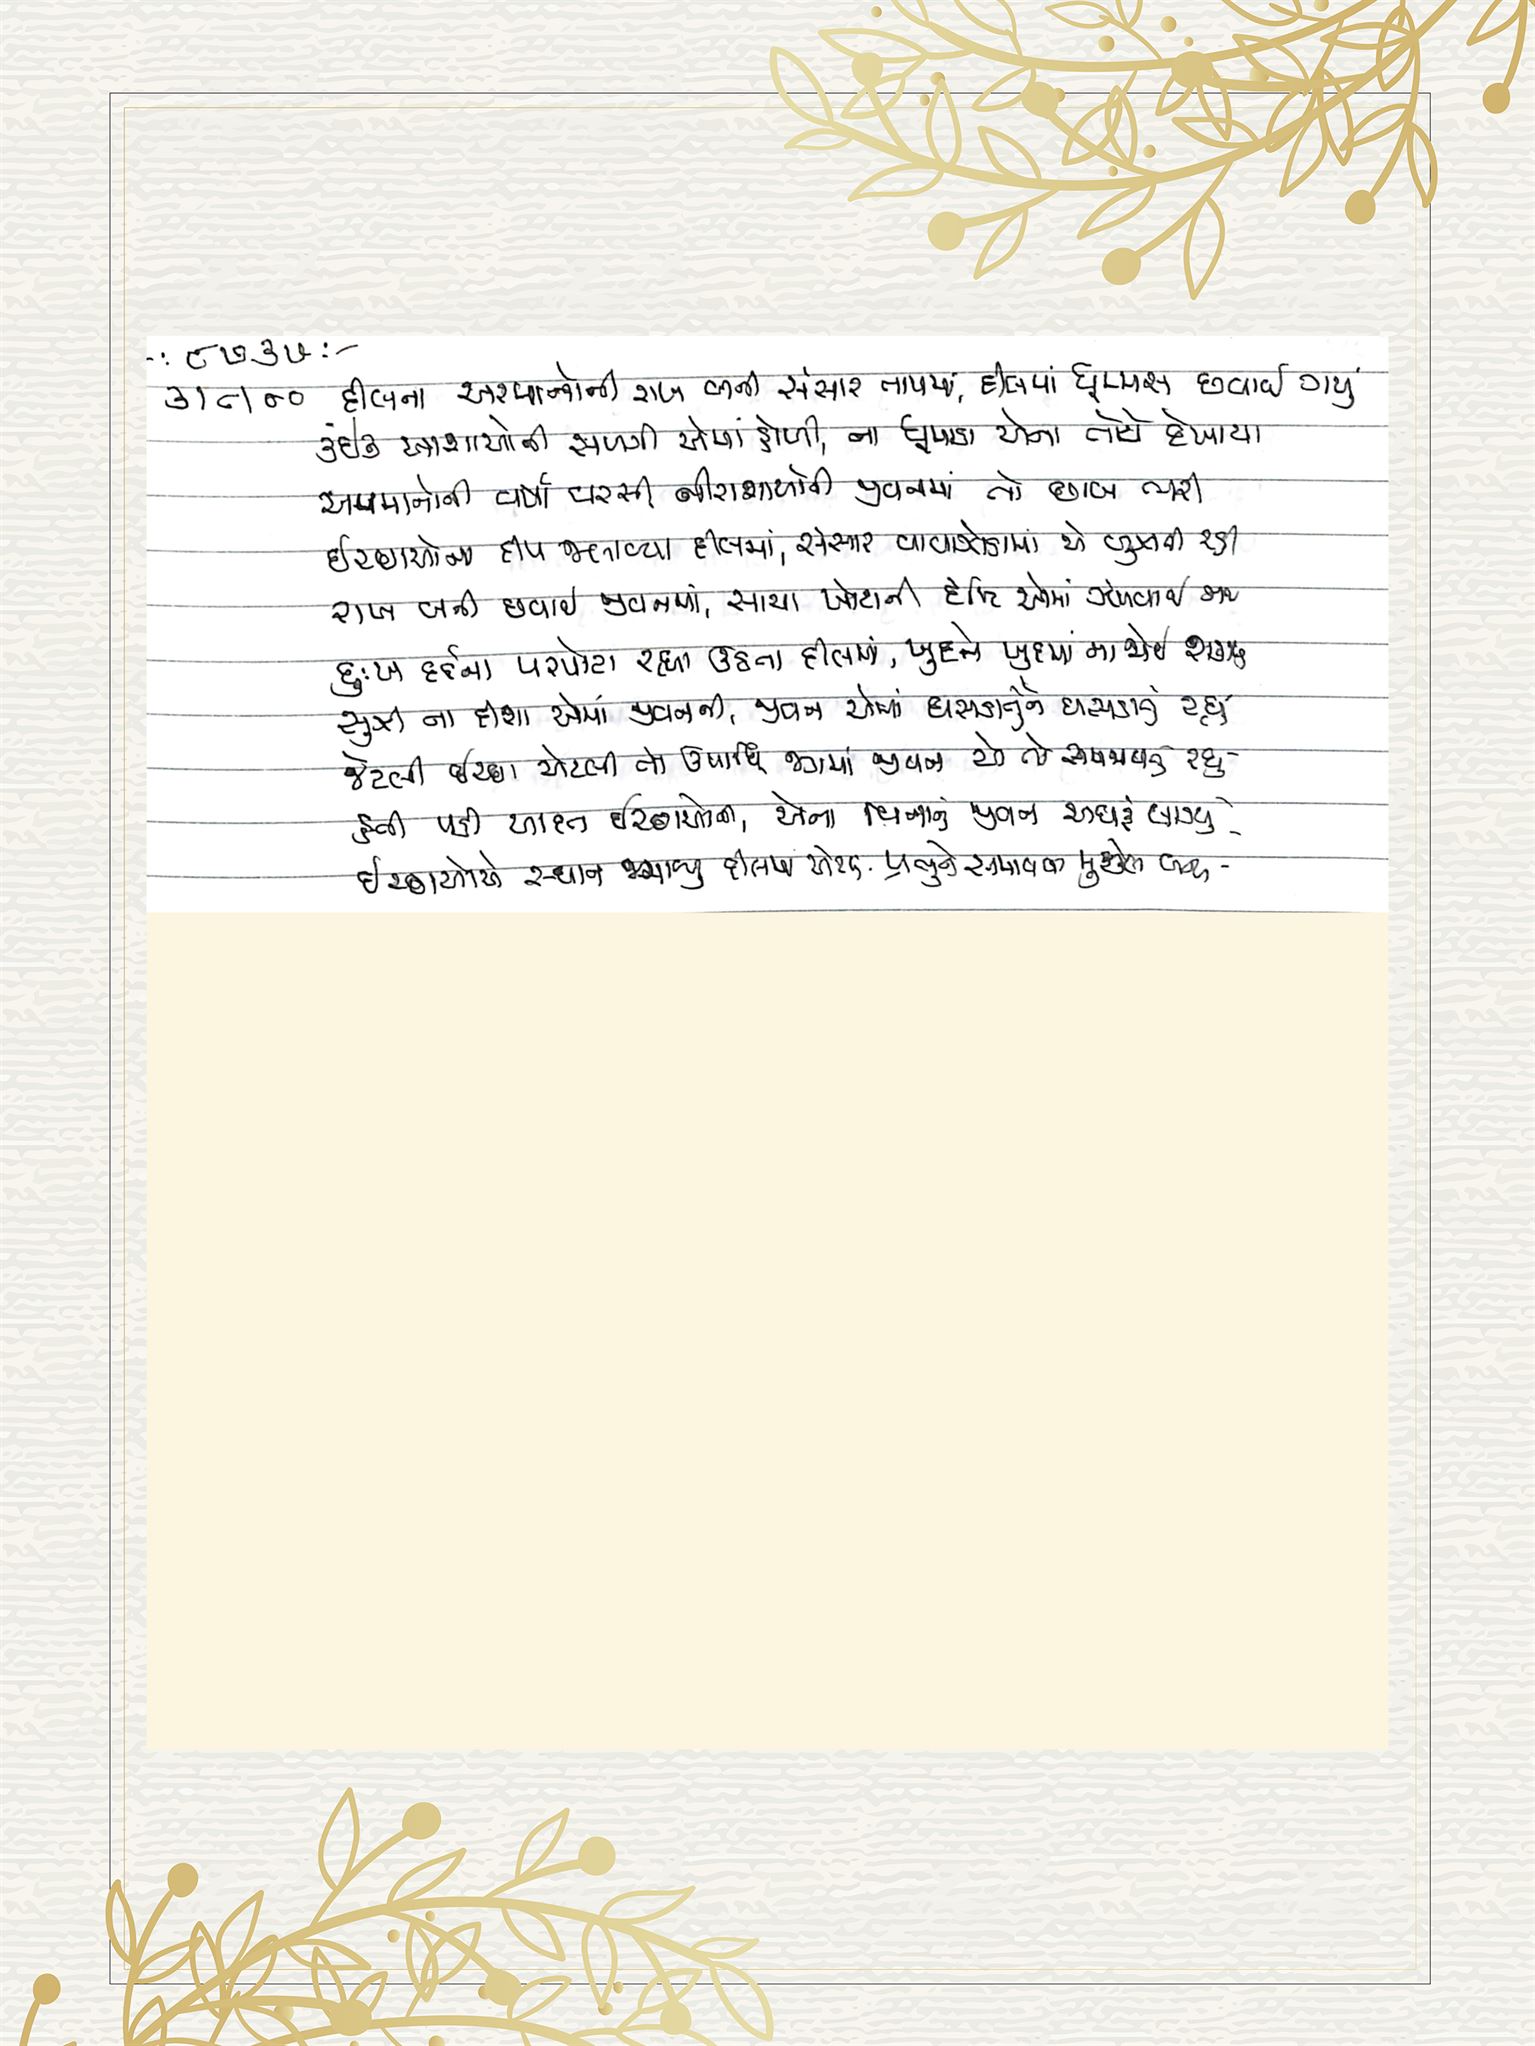 -: ૮૭૩૫ :-
૩/૮/૦૦ દીલના અરમાનોની રાખ બની સંસાર તાપમાં, દીલમાં ધૂમ્મસ છવાઈ ગયું
કંઈક આશાઓની સળગી એમાં હોળી, ના ધૂમાડા એના તોયે દેખાયા
અપમાનોની વર્ષા વરસી નીરાશાઓની જીવનમાં તો છાબ ભરી
ઈચ્છાઓના દીપ જલાવ્યા દીલમાં, સંસાર વાવાઝોડામાં એ બુઝાવી રહી
રાખ બની છવાઈ જીવનમાં, સાચા ખોટાની દૃષ્ટિ એમાં ઝૂંટવાઈ ગઈ
દુઃખ દર્દના પરપોટા રહ્યા ઉઠતા દીલમાં, ખુદને ખુદમાં ના જોઈ
સુઝી ના દીશા એમાં જીવનની, જીવન એમાં ઘસડાતુંને ઘસડાતું રહ્યું
જેટલી ઈચ્છા એટલી તો ઉપાધિ જગમાં જીવન એ તો રહ્યું
પડી આદત ઈચ્છાઓની, એના વિનાનું જીવન અઘરૂં લાગ્યું
ઈચ્છાઓએ સ્થાન જમાવ્યું દીલમાં પ્રભુને સમાવવા મુશ્કેલ